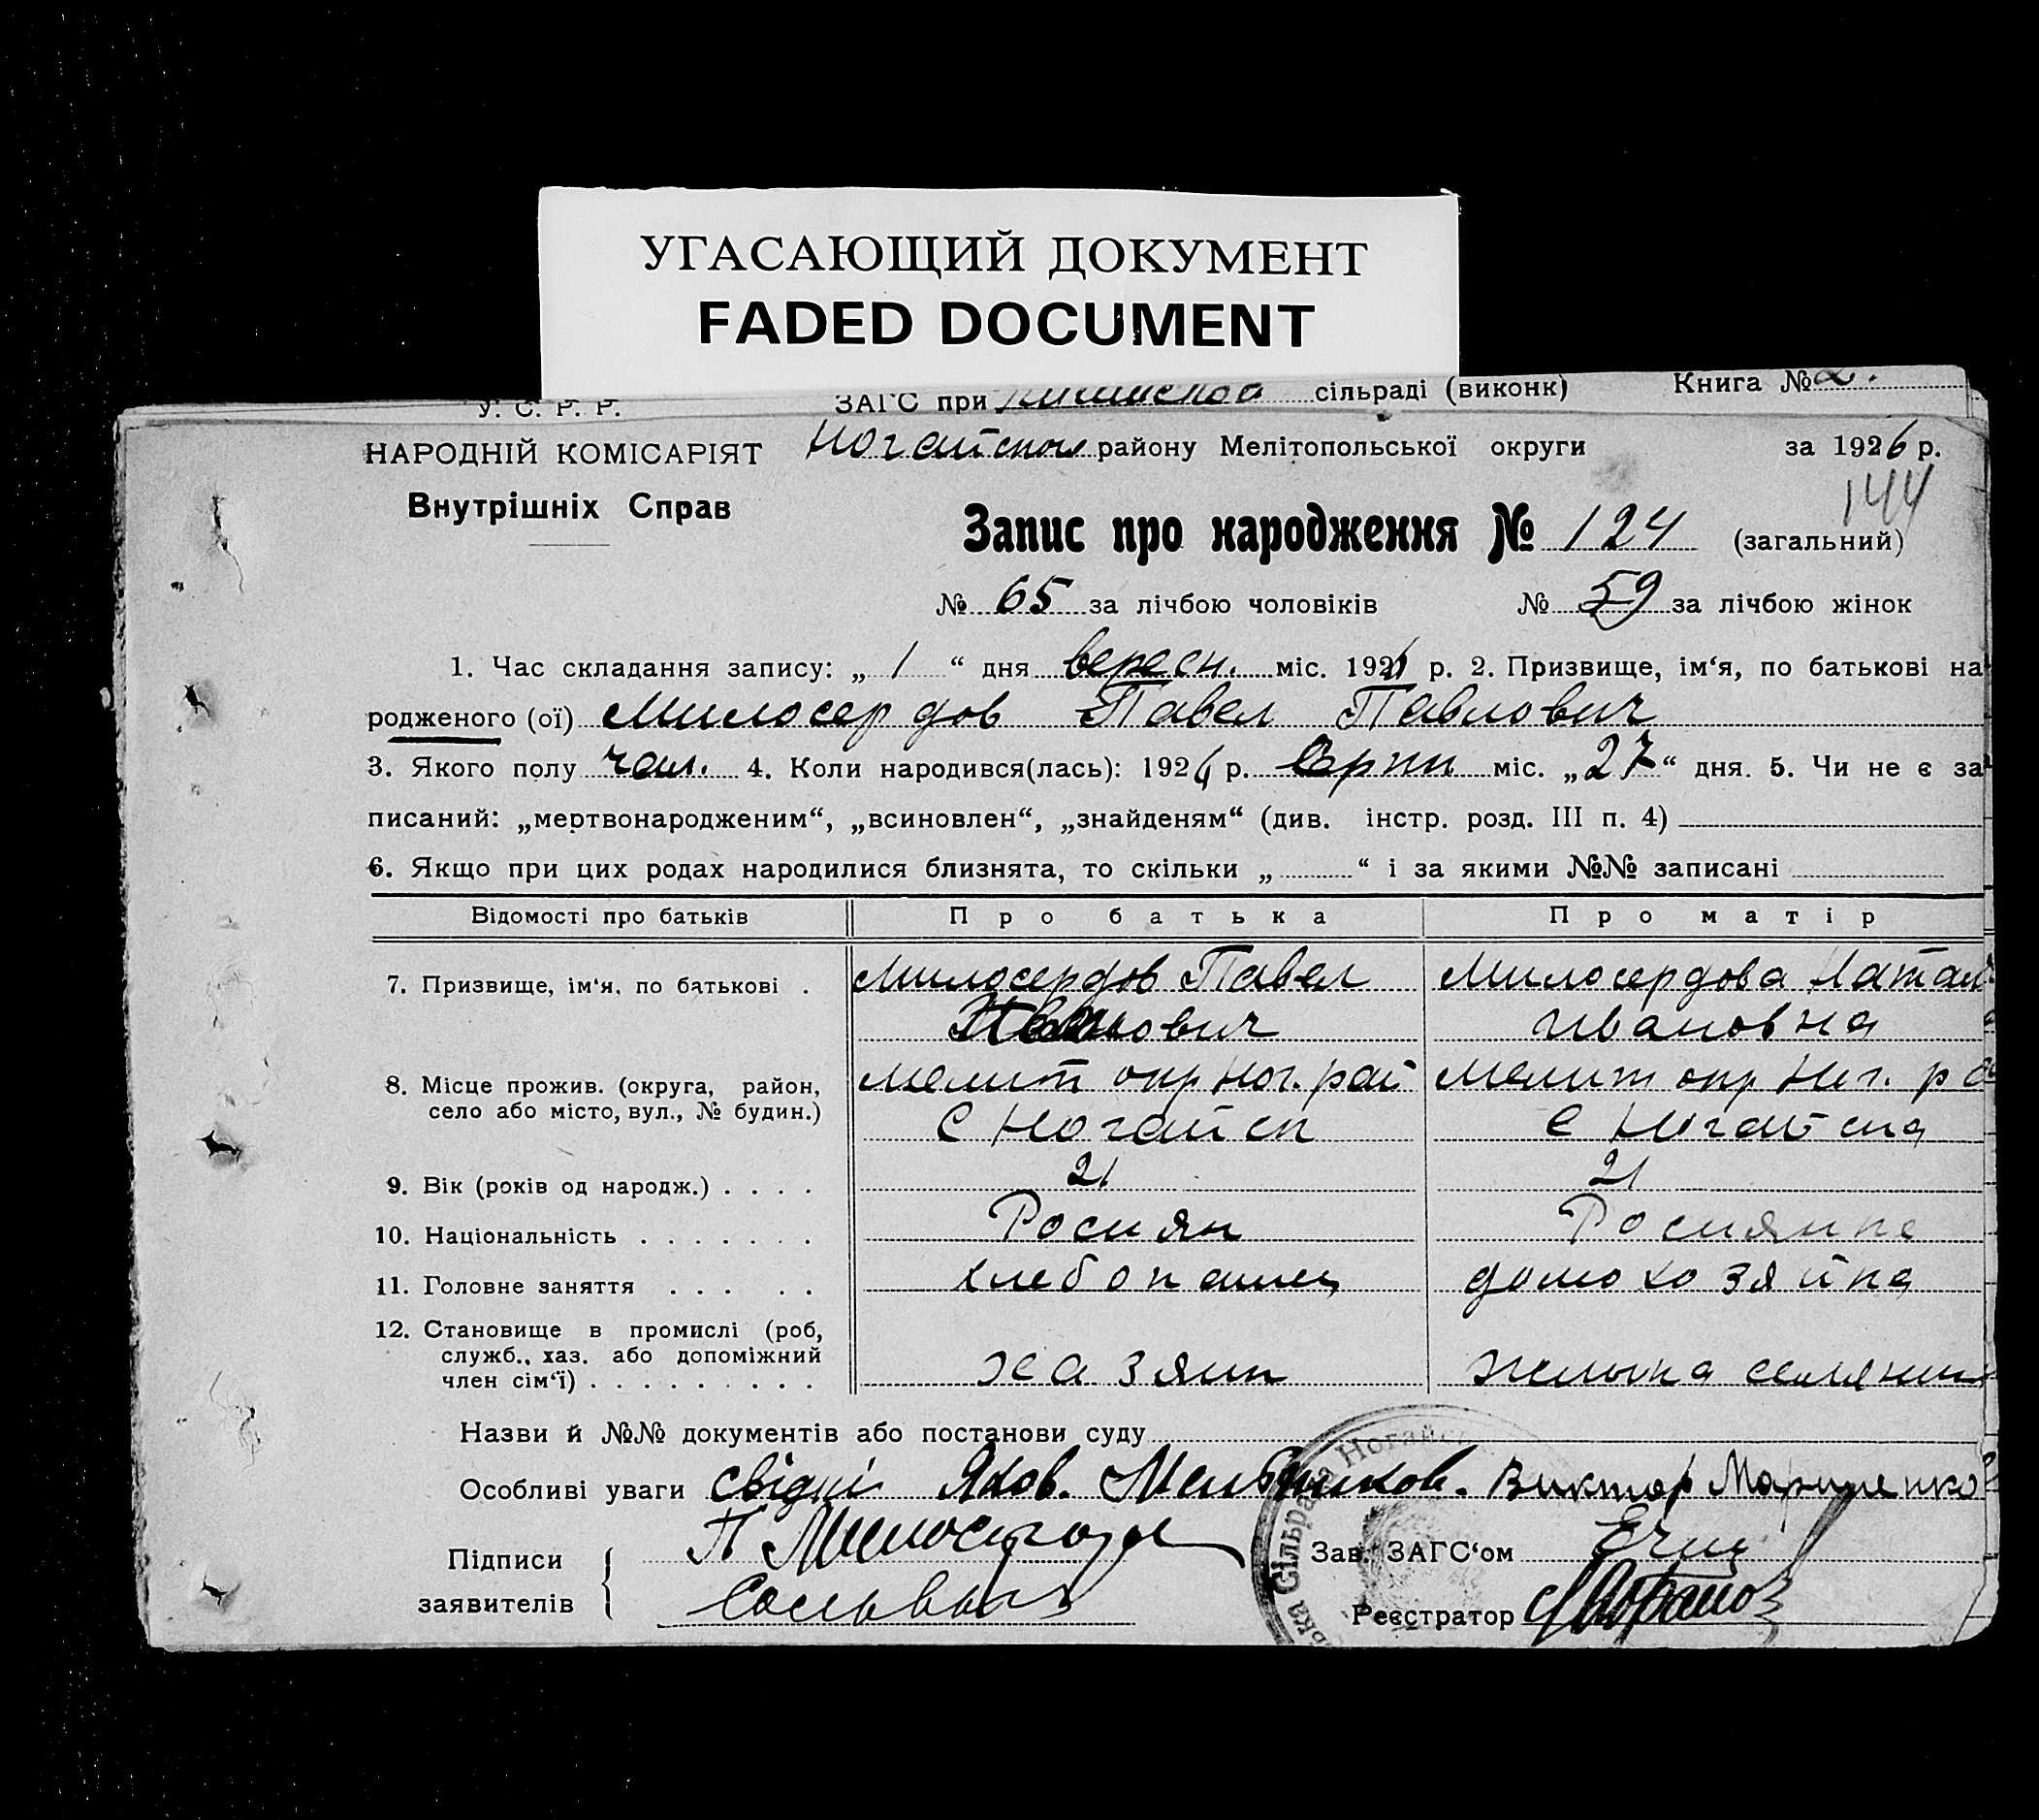 УГАСАЮЩИЙ ДОКУМЕНТ
FADED DOCUMENT
У. С. Р. Р. ЗАГС при сільраді (виконк) Книга № 2.
НАРОДНІЙ КОМІСАРІЯТ Ногайского району Мелітопольської округи за 1926 р.
Внутрішніх Справ
144
Запис про народження № 124 (загальний)
№ 65 за лічбою чоловіків № 59 за лічбою жінок
1. Час складання запису: „ 1 “ дня вересн. міс. 1926 р. 2. Призвище, ім‘я, по батькові на
родженого (ої) Милосердов Павел Павлович
3. Якого полу чол. 4. Коли народився(лась): 1926 р. Серпн міс. „27“ дня. 5. Чи не є за
писаний: „мертвонародженим“, „всиновлен“, „знайденям“ (див. інстр. розд. III п. 4)
6. Якщо при цих родах народилися близнята, то скільки „ “ і за якими №№ записані
Відомості про батьків Про батька Про матір
7. Призвище, ім‘я, по батькові . Милосердов Павел Милосердова Натал
Ивановна
8. Місце прожив. (округа, район, Мелит окр Ног. рай Мелит окр Ног. ра
село або місто, вул., № будин.) С Ногайск С Ногайска
9. Вік (років од народж.) . . . . 21 21
10. Національність . . . . . . . Росиян Росиянка
11. Головне заняття . . . . . хлебопашец домохозяйка
12. Становище в промислі (роб,
служб., хаз. або допоміжний хазяин
член сім‘ї) . . . . . . . . .
Назви й №№ документів або постанови суду
Особливі уваги свідкі Яков. Мельников. Виктор Марченко
Підписи П Милосердов Зав. ЗАГС‘ом
заявителів Реєстратор
Сільрада Ногайс